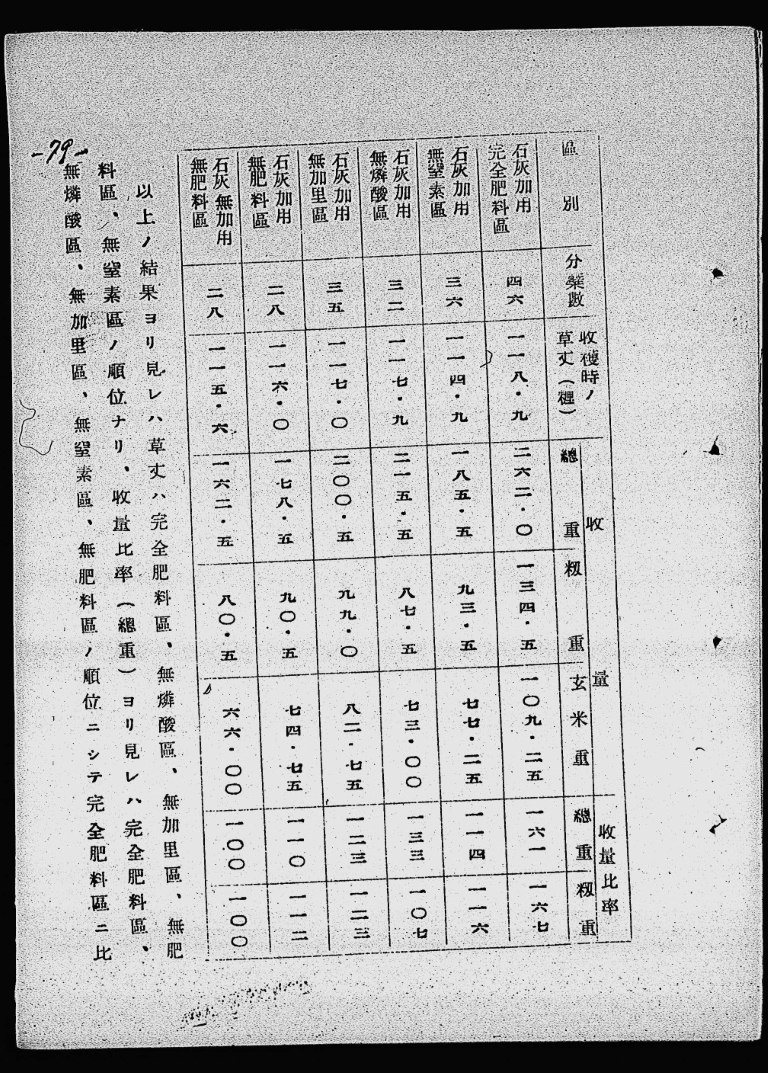 區別
分櫱數
收穫時ノ
草丈(糎)
收量
總重
籾重
玄米重
收量比率
總重
籾重
石灰加用
完全肥料區
四六
一一八・九
二六二・〇
一三四・五
一〇九・二五
一六一
一六七
石灰加用
無窒素區
三六
一一四・九
一八五・五
九三・五
七七・二五
一一四
一一六
石灰加用
無燐酸區
三二
一一七・九
二一五・五
八七・五
七三・〇〇
一三三
一〇七
石灰加用
無加里區
三五
一一七・〇
二〇〇・五
九九・〇
八二・七五
一二三
一二三
石灰加用
無肥料區
二八
一一六・〇
一七八・五
九〇・五
七四・七五
一一〇
一一二
石灰無加用
無肥料區
二八
一一五・六
一六二・五
八〇・五
六六・〇〇
一〇〇
一〇〇
以上ノ結果ヨリ見レハ草丈ハ完全肥料區、無燐酸區、無加里區、無肥
料區、無窒素區ノ順位ナリ、收量比率(總重)ヨリ見レハ完全肥料區、
無燐酸區、無加里區、無窒素區、無肥料區ノ順位ニシテ完全肥料區ニ比
-79-